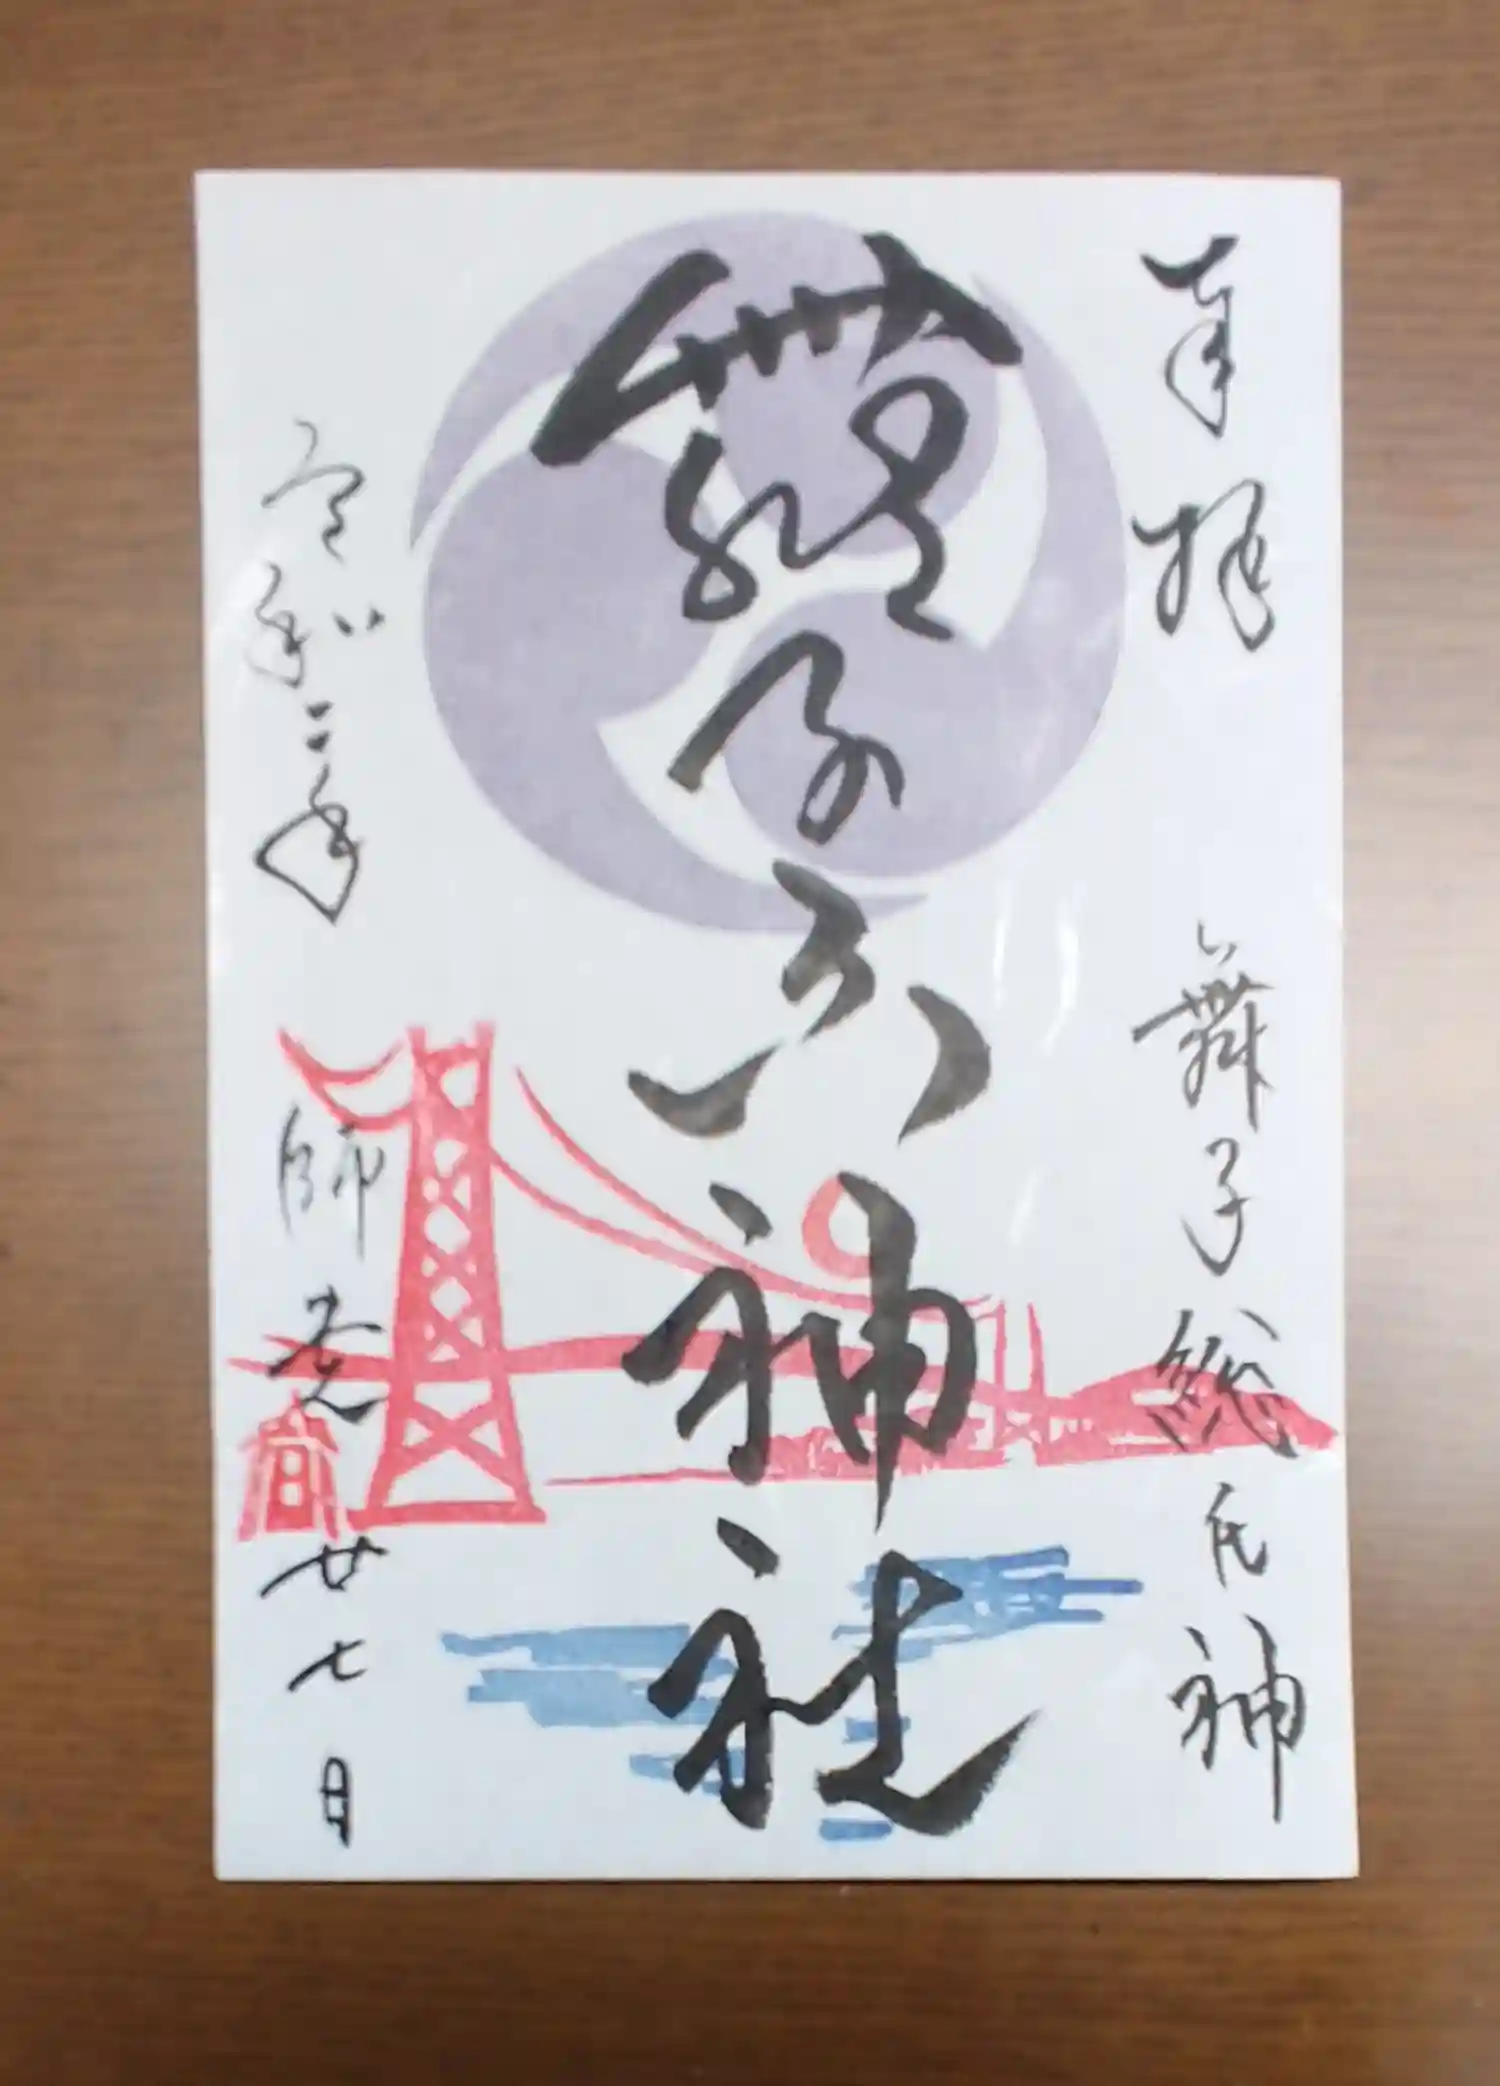 奉拝 舞子総氏神
舞子六神社
令和二年 師走 廿七日